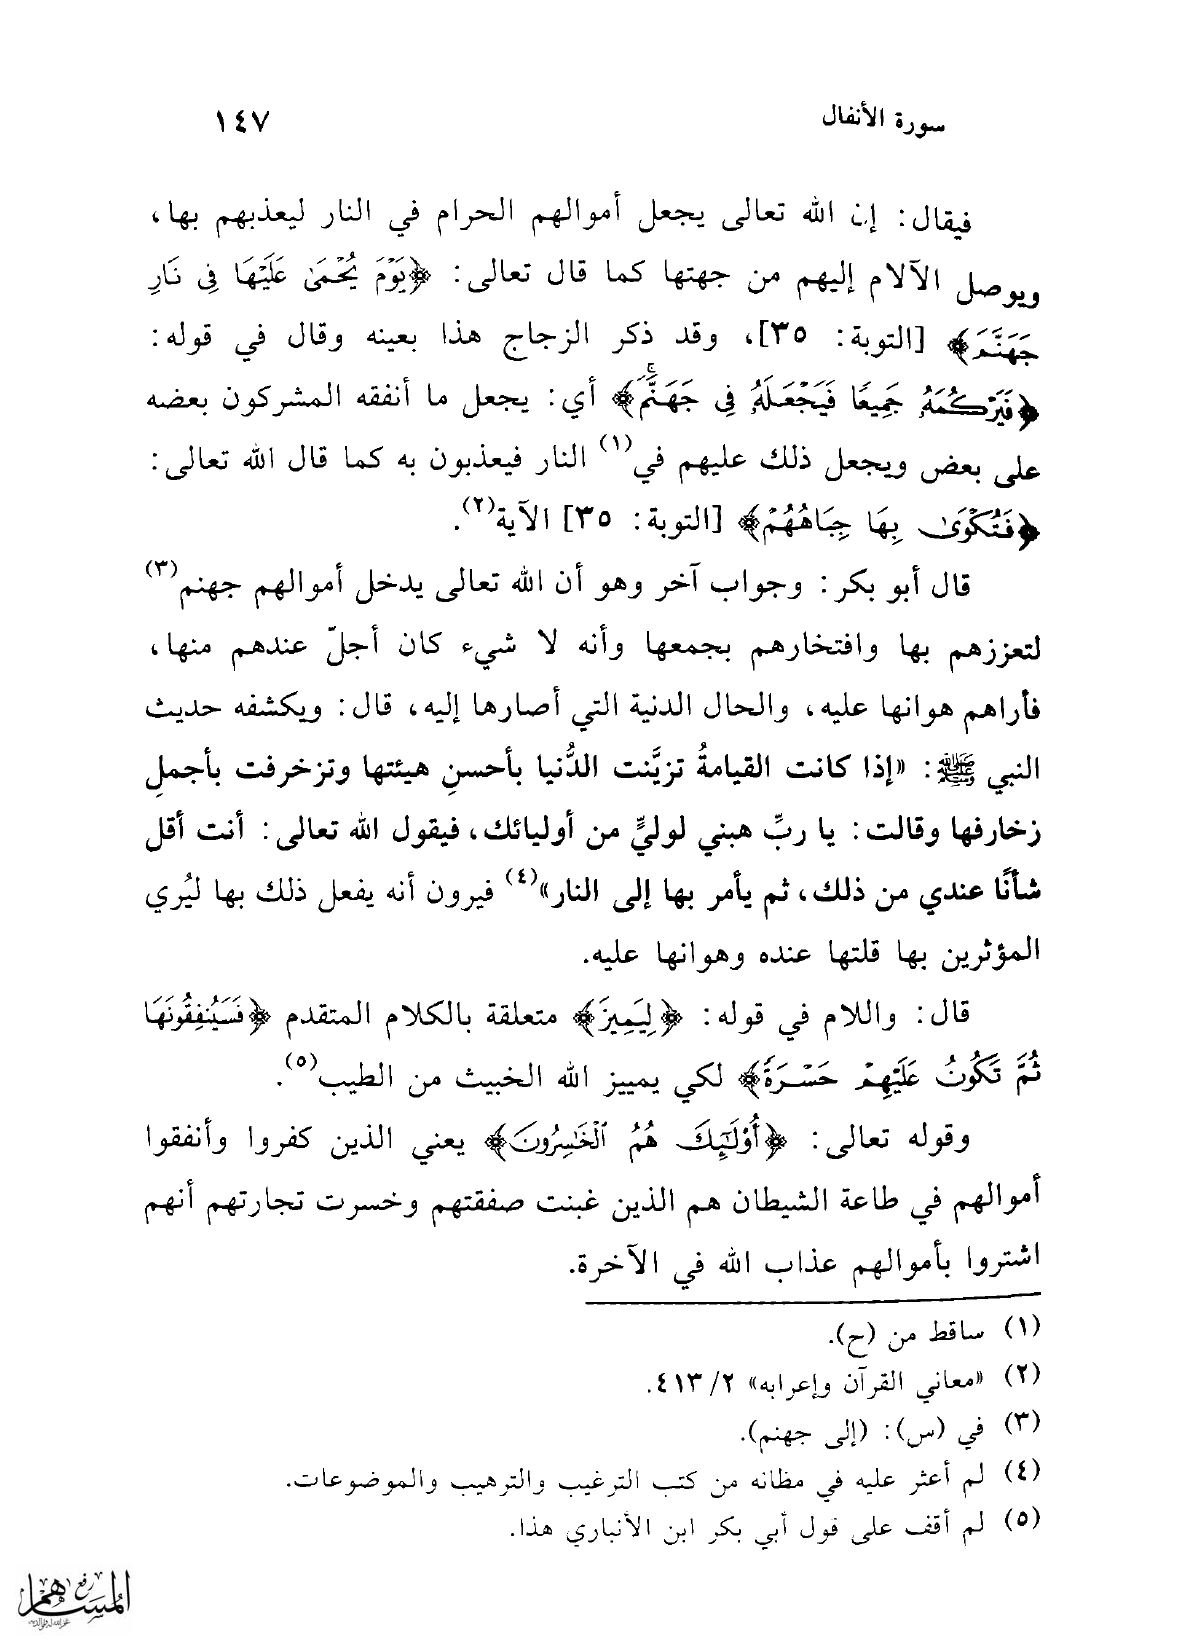 سورة الأنفال ١٤٧
فيقال: إن الله تعالى يجعل أموالهم الحرام في النار ليعذبهم بها،
ويوصل الآلام إليهم من جهتها كما قال تعالى: ﴿يَوْمَ يُحْمَىٰ عَلَيْهَا فِى نَارِ
جَهَنَّمَ﴾ [التوبة: ٣٥]، وقد ذكر الزجاج هذا بعينه وقال في قوله:
﴿فَيَرْكُمَهُۥ جَمِيعًا فَيَجْعَلَهُۥ فِى جَهَنَّمَ﴾ أي: يجعل ما أنفقه المشركون بعضه
على بعض ويجعل ذلك عليهم في(١) النار فيعذبون به كما قال الله تعالى:
﴿فَتُكْوَىٰ بِهَا جِبَاهُهُمْ﴾ [التوبة: ٣٥] الآية(٢).
قال أبو بكر: وجواب آخر وهو أن الله تعالى يدخل أموالهم جهنم(٣)
لتعززهم بها وافتخارهم بجمعها وأنه لا شيء كان أجلّ عندهم منها،
فأراهم هوانها عليه، والحال الدنية التي أصارها إليه، قال: ويكشفه حديث
النبي ﷺ: «إذا كانت القيامةُ تزيَّنت الدُّنيا بأحسنِ هيئتها وتزخرفت بأجملِ
زخارفها وقالت: يا ربِّ هبني لوليٍّ من أوليائك، فيقول الله تعالى: أنت أقل
شأنًا عندي من ذلك، ثم يأمر بها إلى النار»(٤) فيرون أنه يفعل ذلك بها ليُري
المؤثرين بها قلتها عنده وهوانها عليه.
قال: واللام في قوله: ﴿لِيَمِيزَ﴾ متعلقة بالكلام المتقدم ﴿فَسَيُنفِقُونَهَا
ثُمَّ تَكُونُ عَلَيْهِمْ حَسْرَةً﴾ لكي يمييز الله الخبيث من الطيب(٥).
وقوله تعالى: ﴿أُو۟لَٰٓئِكَ هُمُ ٱلْخَٰسِرُونَ﴾ يعني الذين كفروا وأنفقوا
أموالهم في طاعة الشيطان هم الذين غبنت صفقتهم وخسرت تجارتهم أنهم
اشتروا بأموالهم عذاب الله في الآخرة.
(١) ساقط من (ح).
(٢) «معاني القرآن وإعرابه» ٢/ ٤١٣.
(٣) في (س): (إلى جهنم).
(٤) لم أعثر عليه في مظانه من كتب الترغيب والترهيب والموضوعات.
(٥) لم أقف على قول أبي بكر ابن الأنباري هذا.